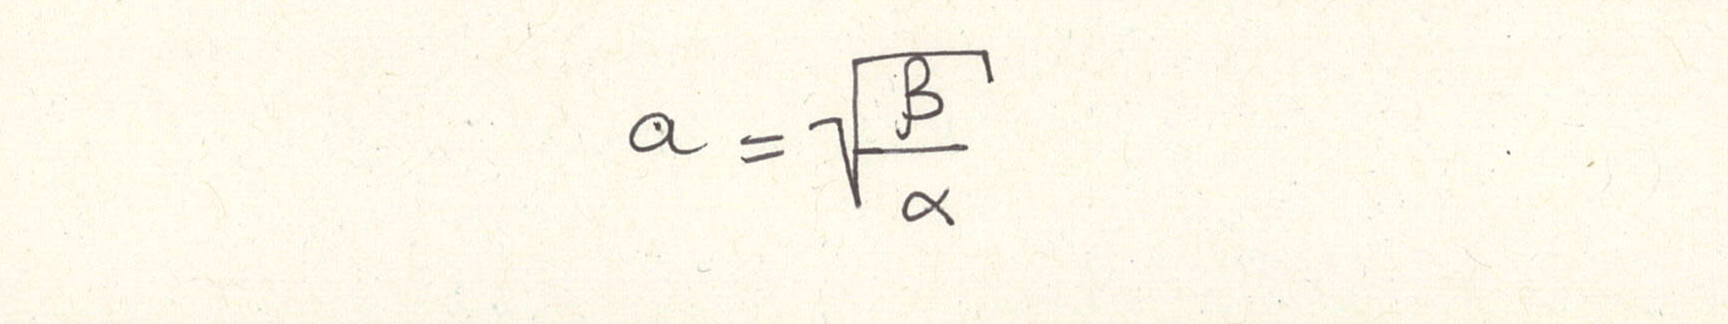 a = √(β/α)